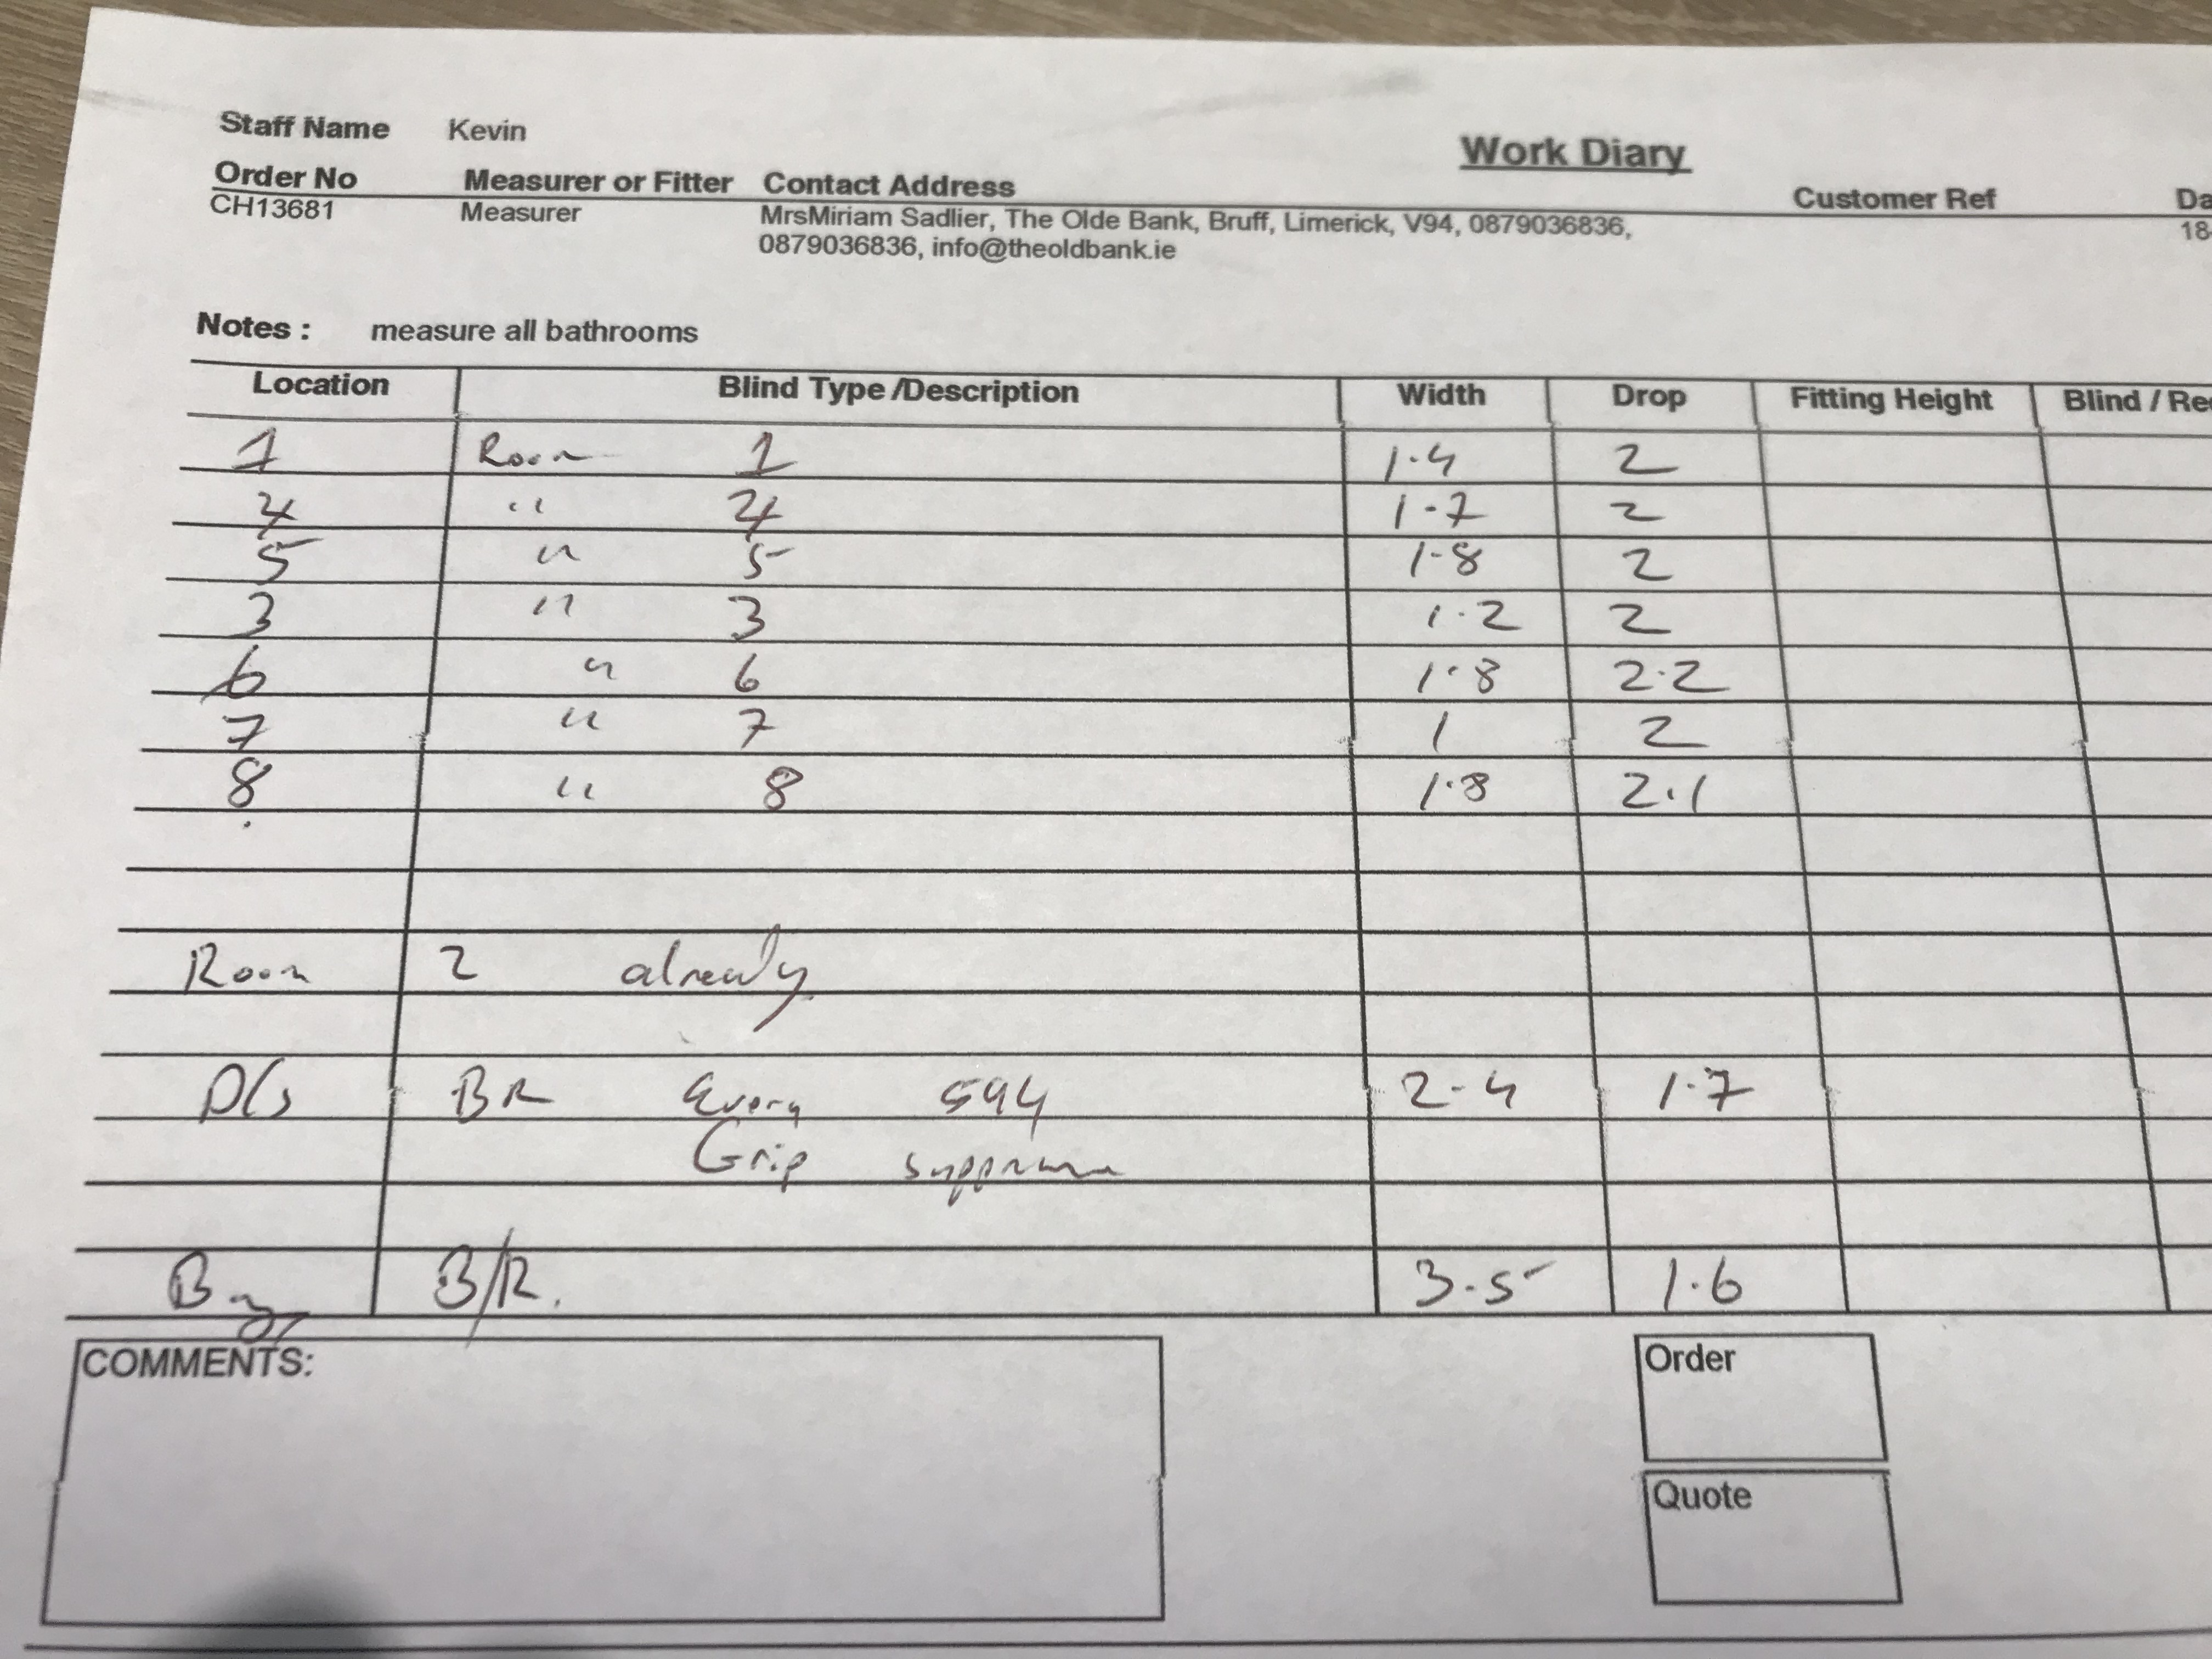 Staff Name Kevin
Work Diary
Order No Measurer or Fitter Contact Address Customer Ref Da
CH13681 Measurer MrsMiriam Sadlier, The Olde Bank, Bruff, Limerick, V94, 0879036836, 18
0879036836, info@theoldbank.ie
Notes : measure all bathrooms
Location Blind Type /Description Width Drop Fitting Height Blind / Re
1 Room 1 1.4 2
4 " 4 1.7 2
5 " 5 1.8 2
3 " 3 1.2 2
6 " 6 1.8 2.2
7 " 7 1 2
8 " 8 1.8 2.1
Room 2 already
BR 594 2.4 1.7
Grip
Bay B/R. 3.5 1.6
COMMENTS:
Order
Quote